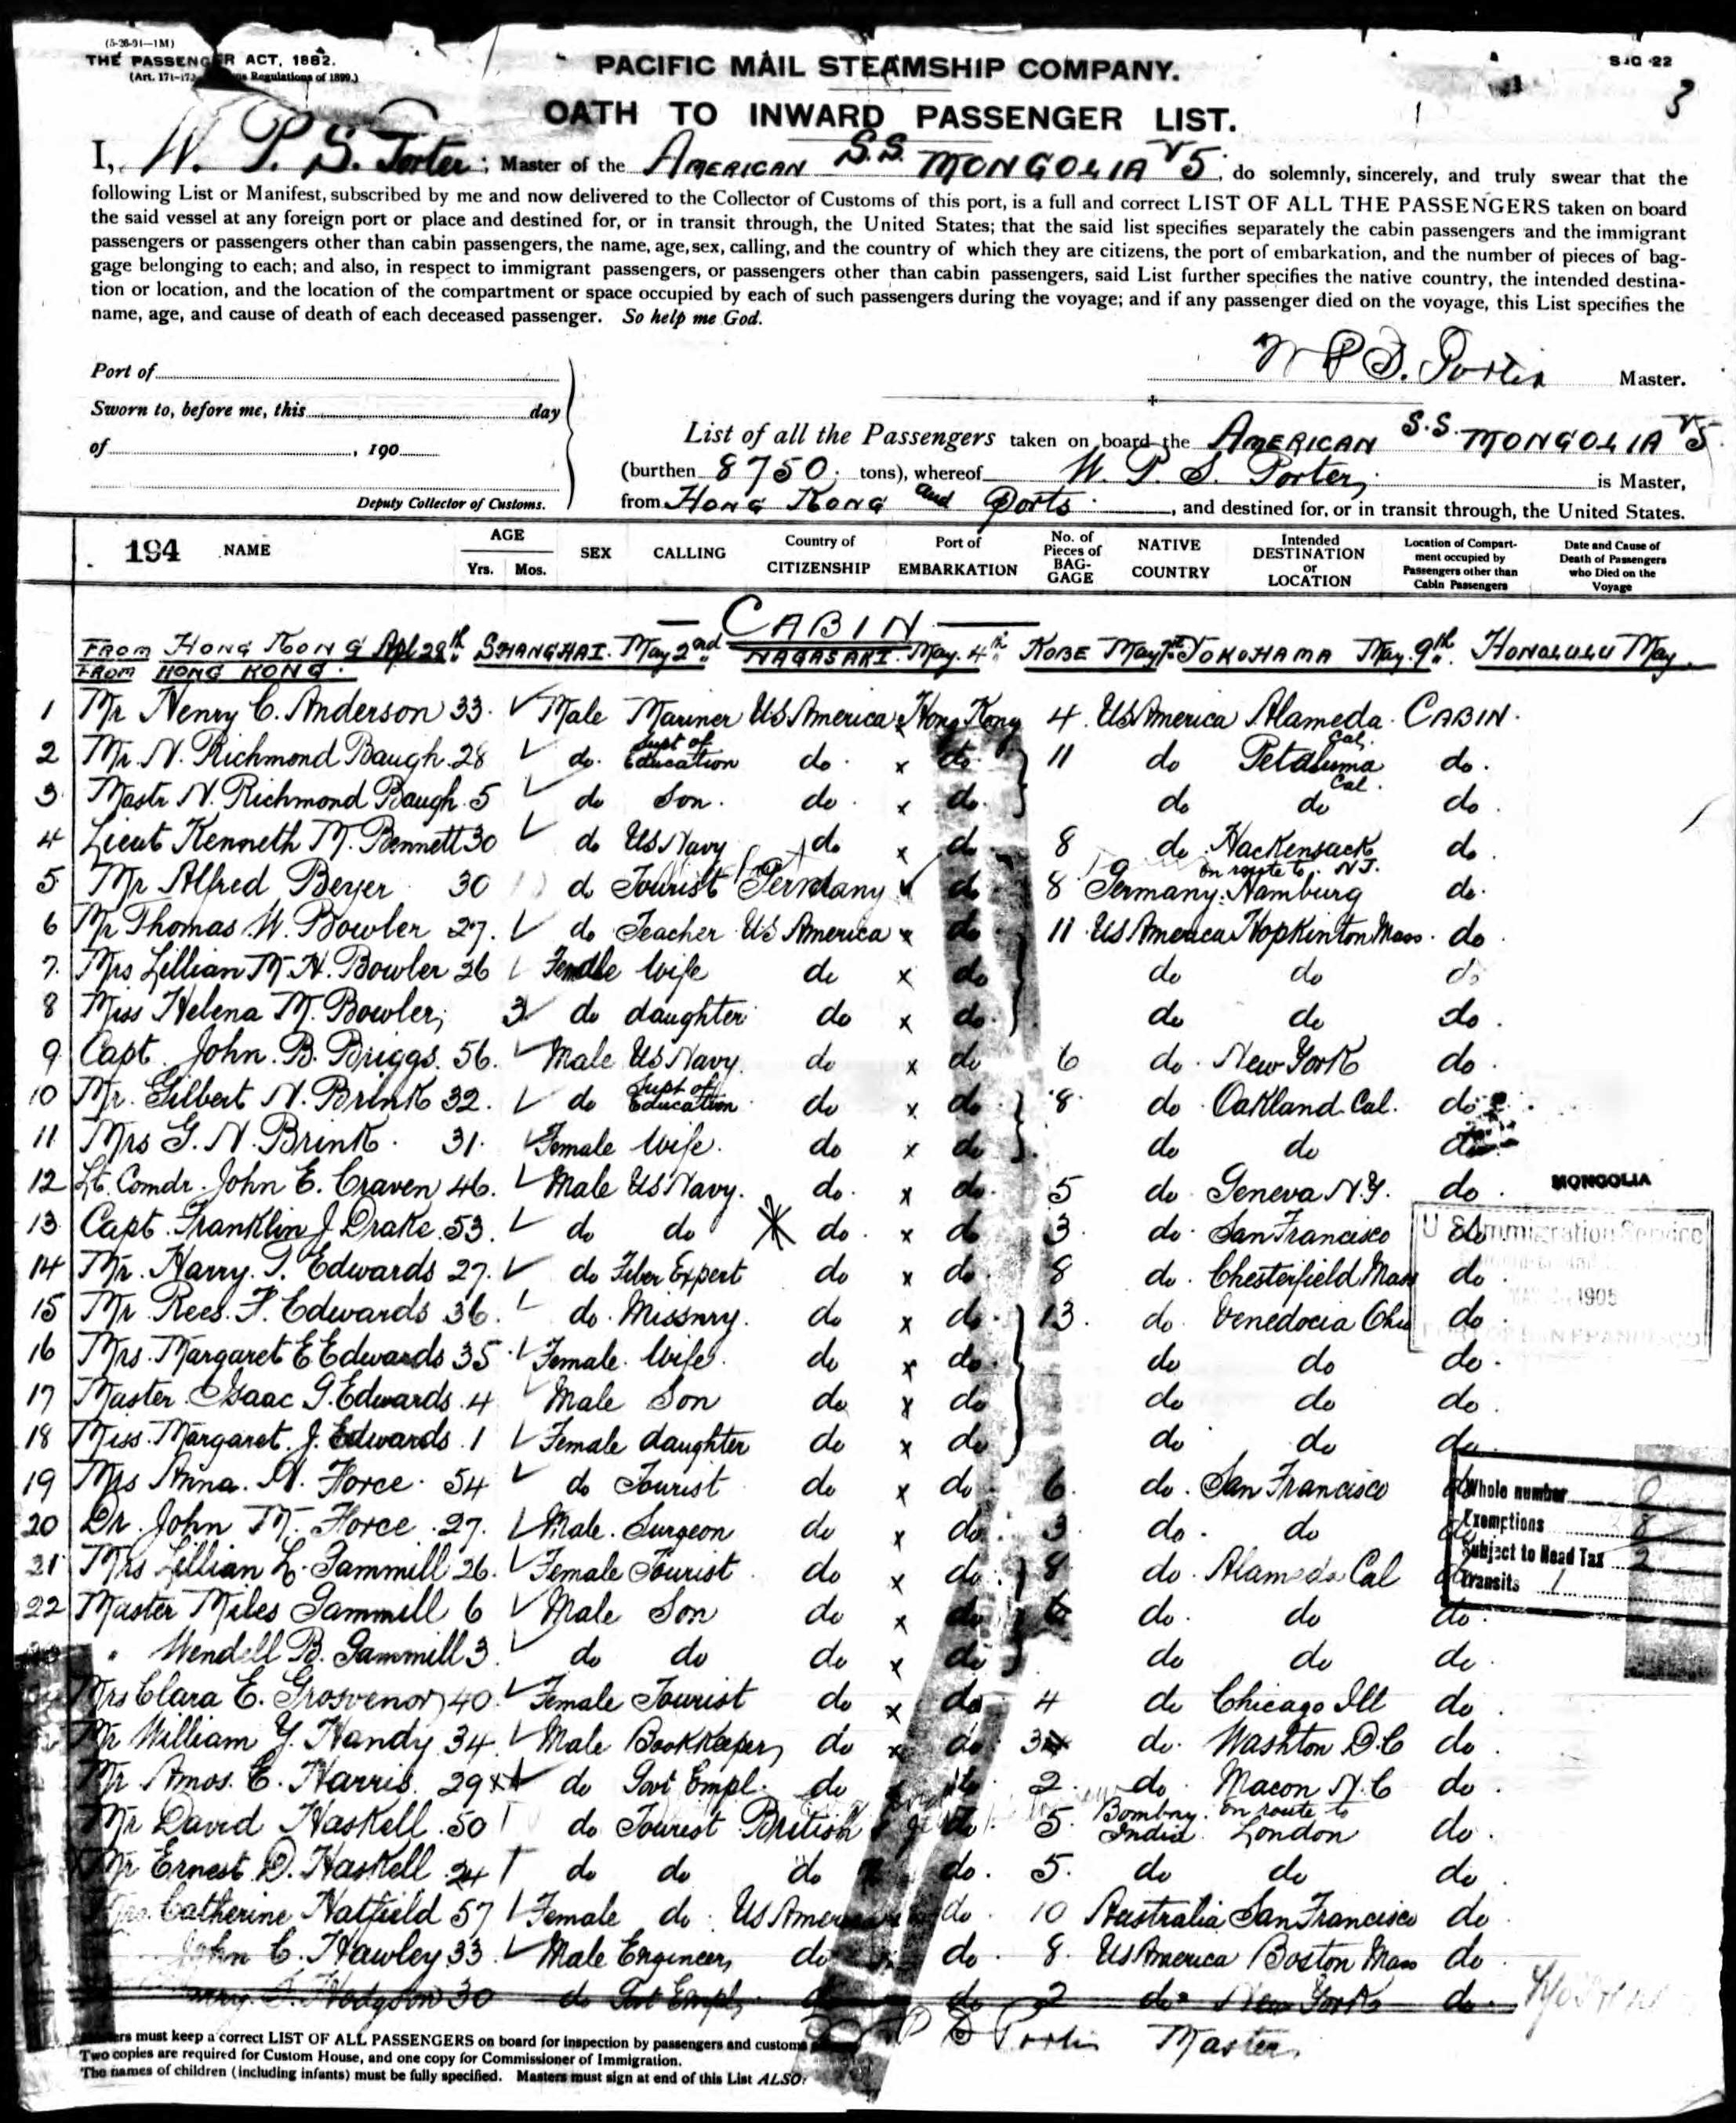 (5-26-01—1M)
THE PASSENGER ACT, 1882.
(Art. 171-172 Regulations of 1899.)
PACIFIC MAIL STEAMSHIP COMPANY.
OATH TO INWARD PASSENGER LIST.
3
I, W. P. S. Porter; Master of the AMERICAN S.S. MONGOLIA V5, do solemnly, sincerely, and truly swear that the
following List or Manifest, subscribed by me and now delivered to the Collector of Customs of this port, is a full and correct LIST OF ALL THE PASSENGERS taken on board
the said vessel at any foreign port or place and destined for, or in transit through, the United States; that the said list specifies separately the cabin passengers and the immigrant
passengers or passengers other than cabin passengers, the name, age, sex, calling, and the country of which they are citizens, the port of embarkation, and the number of pieces of bag-
gage belonging to each; and also, in respect to immigrant passengers, or passengers other than cabin passengers, said List further specifies the native country, the intended destina-
tion or location, and the location of the compartment or space occupied by each of such passengers during the voyage; and if any passenger died on the voyage, this List specifies the
name, age, and cause of death of each deceased passenger. So help me God.
W P S. Porter Master.
Port of
Sworn to, before me, this day
of , 190
Deputy Collector of Customs.
List of all the Passengers taken on board the AMERICAN S.S. MONGOLIA V5
(burthen 8750. tons), whereof W. P. S. Porter, is Master,
from HONG KONG and Ports, and destined for, or in transit through, the United States.
194 NAME AGE Yrs. Mos. SEX CALLING Country of CITIZENSHIP Port of EMBARKATION No. of Pieces of BAG-GAGE NATIVE COUNTRY Intended DESTINATION or LOCATION Location of Compart-ment occupied by Passengers other than Cabin Passengers Date and Cause of Death of Passengers who Died on the Voyage
CABIN
FROM HONG KONG Apl 28th SHANGHAI. May 2nd NAGASAKI. May. 4th KOBE May YOKOHAMA May. 9th. HONOLULU May
FROM HONG KONG.
1 Mr Henry C. Anderson 33. Male Mariner US America x Hong Kong 4. US America Alameda Cal. CABIN.
2 Mr. N. Richmond Baugh. 28 do. Supt of Education do. x do. 11 do Petaluma Cal. do.
3 Mastr N. Richmond Baugh. 5 do Son. do. x do. do do do.
4 Lieut Kenneth M. Bennett 30 do US Navy do x do 8 do. Hackensack N.J. do.
5 Mr Alfred Beyer 30 do Tourist Germany do 8 Germany. on route to Hamburg do.
6 Mr Thomas W. Bowler 27. do Teacher US America x do 11. US America Hopkinton Mass. do
7. Mrs Lillian M. H. Bowler 26 Female Wife do x do do do do
8 Miss Helena M. Bowler, 3 do daughter do x do. do do do.
9 Capt. John. B. Briggs. 56. Male US Navy. do x do 6 do. New York do.
10 Mr. Gilbert N. Brink 32. do Supt of Education. do x do. 8. do. Oakland. Cal. do.
11 Mrs G. N. Brink. 31. Female Wife. do x do. do do do
12 Lt. Comdr. John E. Craven 46. Male US Navy. do. x do. 5 do. Geneva N.Y. do.
13 Capt. Franklin J. Drake. 53. do do do. x do 3. do. San Francisco do
14 Mr. Harry. T. Edwards 27. do Fiber Expert do x do. 8 do. Chesterfield Mass do.
15 Mr Rees. F. Edwards 36. do. Missnry. do x do. 13. do. Venedocia Ohio do.
16 Mrs. Margaret E Edwards 35. Female. Wife. do x do. do do do.
17 Master. Isaac G. Edwards. 4 Male Son do x do do do do.
18 Miss. Margaret. J. Edwards. 1 Female daughter do x do do do do.
19 Mrs Anna. N. Force. 54 do Tourist do x do. 6. do. San Francisco
20 Dr. John M. Force. 27. Male. Surgeon do x do. 3. do. do
21 Mrs Lillian L. Gammill 26. Female Tourist do x do. 8 do. Alameda Cal
22 Master Miles Gammill 6 Male Son do x do do. do do.
" Wendell B. Gammill 3. do do do x do do do do.
Mrs Clara E. Grosvenor 40. Female Tourist do x do. 4 do Chicago Ill do.
Mr William Y. Handy. 34. Male Bookkeeper, do x do. 3 do. Washton D.C do.
Mr Amos. C. Harris. 29 do Govt Empl. do do. 2. do. Macon N.C do.
Mr David Haskell. 50 do Tourist British do 5. Bombay. India on route to London do.
Mr Ernest. D. Haskell. 24 do do do do. 5. do do do.
Mrs. Catherine Hatfield 57 Female do. US America do. 10 Australia San Francisco do.
John C. Hawley 33. Male Engineer, do do. 8. US America Boston Mass do.
Hodgson 30 do Govt Empl, do do 2 do. New York do.
MONGOLIA
U S Immigration Service
1905
PORT OF SAN FRANCISCO
Whole number
Exemptions 8
Subject to Head Tax 2
Transits 1
P S Porter Master,
Masters must keep a correct LIST OF ALL PASSENGERS on board for inspection by passengers and customs
Two copies are required for Custom House, and one copy for Commissioner of Immigration.
The names of children (including infants) must be fully specified. Masters must sign at end of this List ALSO.